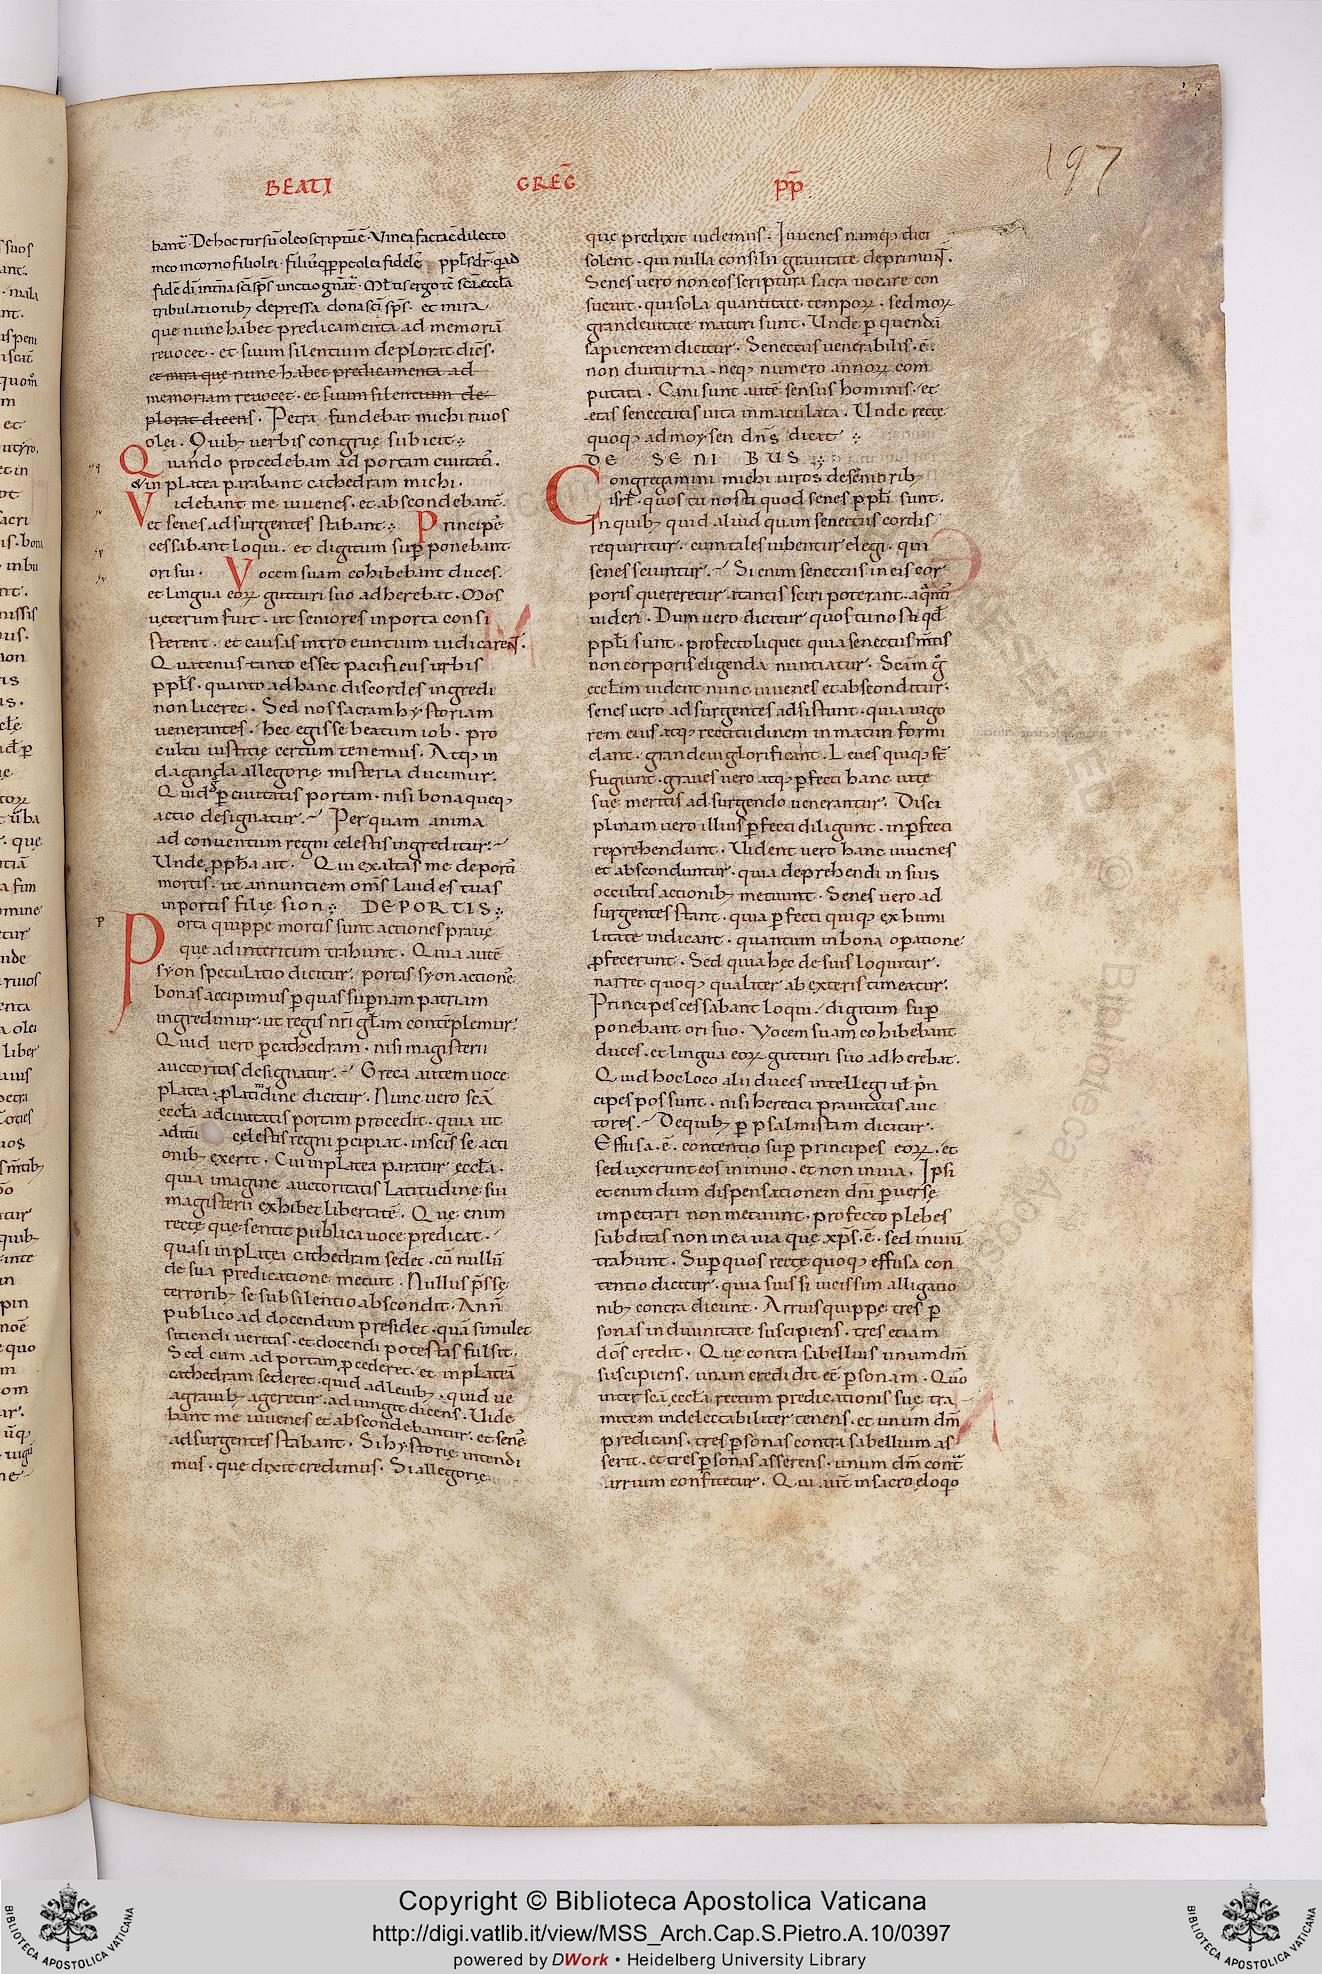 BEATI GREḠ PP̄
197
bant᷑· De hoc rursū oleo scriptū ē· Vinea facta ē dilecto
meo in corno filio olei·
tribulationib; depressa· dona sc̄i sp̄s· et mira
que nunc habet predicamenta ad memoriā
reuocet· et suum silentium deplorat dic̄s·
et mira quę nunc habet predicamenta ad
memoriam reuocet· et suum silentium de
plorat dicens· Petra fundebat michi riuos
olei· Quib; uerbis congruę subicit·
Quando procedebam ad portam ciuitatis·
& in platea parabant cathedram michi·
Videbant me iuuenes· et abscondebant᷑·
et senes adsurgentes stabant· Principes
cessabant loqui· et digitum sup̄ponebant
ori suo· Vocem suam cohibebant duces·
et lingua eoꝝ gutturi suo adherebat· Mos
ueterum fuit· ut seniores in porta consi
sterent· et causas introeuntium iudicarent·
Quatenus tanto esset pacificus urbis
pp̄ls· quanto ad hanc discordes ingredi
non liceret· Sed nos sacram hystoriam
uenerantes· hec egisse beatum iob· pro
cultu iustitię certum tenemus· Atq; in
daganda allegorię misteria ducimur·
Quid ꝑ ciuitatis portam· nisi bona queq;
actio designatur· Per quam anima
ad conuentum regni celestis ingreditur·
Unde pp̄ha ait· Qui exaltas me de portis
mortis· ut annuntiem om̄s laudes tuas
in portis filię sion· DE PORTIS·
Porta quippe mortis sunt actiones prauę
que ad interitum trahunt· Quia autē
syon speculatio dicitur· portas syon actiones
bonas accipimus ꝑ quas sup̄nam patriam
ingredimur· ut regis nr̄i gl̄am contēplemur·
Quid uero ꝑ cathedram· nisi magisterii
auctoritas designatur· Greca autem uoce
platea· a latitudine dicitur· Nunc uero sc̄a
eccl̄a ad ciuitatis portam procedit· quia ut
aditū celestis regni ꝑcipiat· in sc̄is se acti
onib; exerit· Cui in platea paratur eccl̄a·
quia imagine auctoritatis latitudine sui
magisterii exhibet libertatē· Quę enim
rectę que sentit publica uoce predicat·
quasi in platea cathedram sedet· cū nullū
de sua predicatione metuit· Nullus pssę
terrorib; se sub silentio abscondit·
publico ad docendum presidet· quā simulet
sitiendi ueritas· et docendi potestas fulsit·
Sed cum ad portam ꝓcederet· et in plateā
cathedram sederet· quid ad leuib;· quid ue
a grauib; ageretur· adiungit dicens· Uide
bant me iuuenes et abscondebantur· et senes
adsurgentes stabant· Si hystorię intendi
mus· que dixit credimus· Si allegorię
que predixit uidemus· Iuuenes namq; dici
solent· qui nulla consilii grauitate deprimunt᷑·
Senes uero non eos scriptura sacra uocare con
sueuit· qui sola quantitate tempoꝝ· sed moꝝ
grandeuitate maturi sunt· Unde ꝑ quendā
sapientem dicitur· Senectus uenerabilis· ē·
non diuturna· neq; numero annoꝝ com
putata· Cani sunt autē sensus hominis· et
etas senectutis uita inmaculata· Unde recte
quoq; ad moysen dn̄s dicit·
DE SENIBUS·
Congregamini michi uiros de seniorib;
isrl̄· quos tu nosti quod senes pp̄li sunt·
In quib; quid aliud quam senectus cordis
requiritur· cum tales iubentur elegi· qui
senes sciuntur· Si enim senectus in eis cor
poris quereretur· a tantis sciri poterant· a quantis
uideri· Dum uero dicitur quos tu nosti qd̄
pp̄li sunt· profecto liquet quia senectus m̄tis
non corporis eligenda nuntiatur· Sc̄am g͛
eccl̄im uident nunc iuuenes et absconditur·
senes uero adsurgentes adsistunt· quia uigo
rem eius atq; rectitudinem inmaturi formi
dant· grandeui glorificant· Leues quiq; s̄t
fugiunt· graues uero atq; ꝑfecti hanc uitę
sue meritis adsurgendo uenerantur· Disci
plinam uero illius ꝑfecti diligunt· inꝑfecti
reprehendunt· Uident uero hanc iuuenes
et absconduntur· quia deprehendi in suis
occultis actionib; metuunt· Senes uero ad
surgentes stant· quia ꝑfecti quiq; ex humi
litate indicant· quantum in bona oꝑatione
ꝓfecerunt· Sed quia hęc de suis loquitur·
narret quoq; qualiter ab exteris timeatur·
Principes cessabant loqui· digitum sup̄
ponebant ori suo· Vocem suam cohibebant
duces· et lingua eoꝝ gutturi suo adherebat·
Quid hoc loco alii duces intellegi ul̄ prin
cipes possunt· nisi heretici prauitatis auc
tores· De quib; ꝑ psalmistam dicitur·
Effusa· ē· contentio sup̄ principes eoꝝ· et
seduxerunt eos in inuio· et non in uia· Ipsi
etenim dum dispensationem dn̄i ꝑuerse
impetrari non metuunt· profecto plebes
subditas non in ea uia que xp̄s· ē· sed inuiū
trahunt· Sup̄ quos rectę quoq; effusa con
tentio dicitur· quia suis si uicissim alligatio
nib; contradicunt· Arrius quippę tres ꝑ
sonas in diuinitate suscipiens· tres etiam
dōs credit· Que contra sabellius unum dm̄
suscipiens· unam credidit eē ꝑsonam· Quo
inter sc̄a eccl̄a rectum predicationis suę tra
mitem indeleccabiliter tenens· et unum dm̄
predicans· tres ꝑsonas contra sabellium as
serit· et tres ꝑsonas asserens· unum dm̄ cont᷑
arrium confitetur· Qui aut̄ in sacro eloq̄o
Copyright © Biblioteca Apostolica Vaticana
http://digi.vatlib.it/view/MSS_Arch.Cap.S.Pietro.A.10/0397
powered by DWork • Heidelberg University Library
BIBLIOTECA APOSTOLICA VATICANA
BIBLIOTECA APOSTOLICA VATICANA